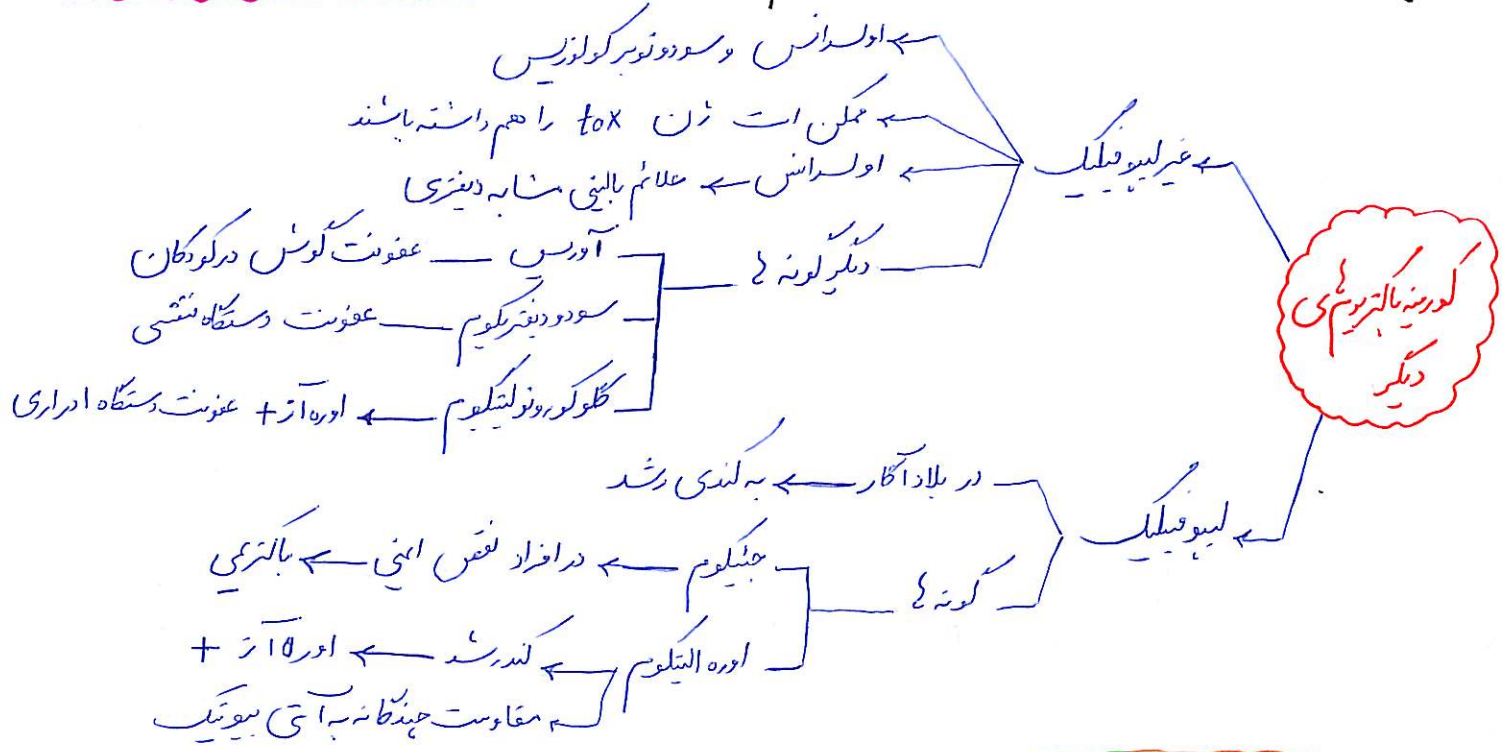 کورینه باکتریوم های
دیگر
غیر لیپوفیلیک
اولسرانس و سودوتوبرکولوزیس
ممکن است ژن tox را هم داشته باشند
اولسرانس ← علائم بالینی مشابه دیفتری
دیگر گونه ها
آوریس — عفونت گوش در کودکان
سودودیفتریکوم — عفونت دستگاه تنفسی
گلوکورونولیتیکوم ← اوره آز + عفونت دستگاه ادراری
لیپوفیلیک
در بلاد آگار ← به کندی رشد
گونه ها
جئیکوم ← در افراد نقص ایمنی ← باکتریمی
اوره الیتکوم ← کند رشد ← اوره آز +
مقاومت چندگانه به آنتی بیوتیک